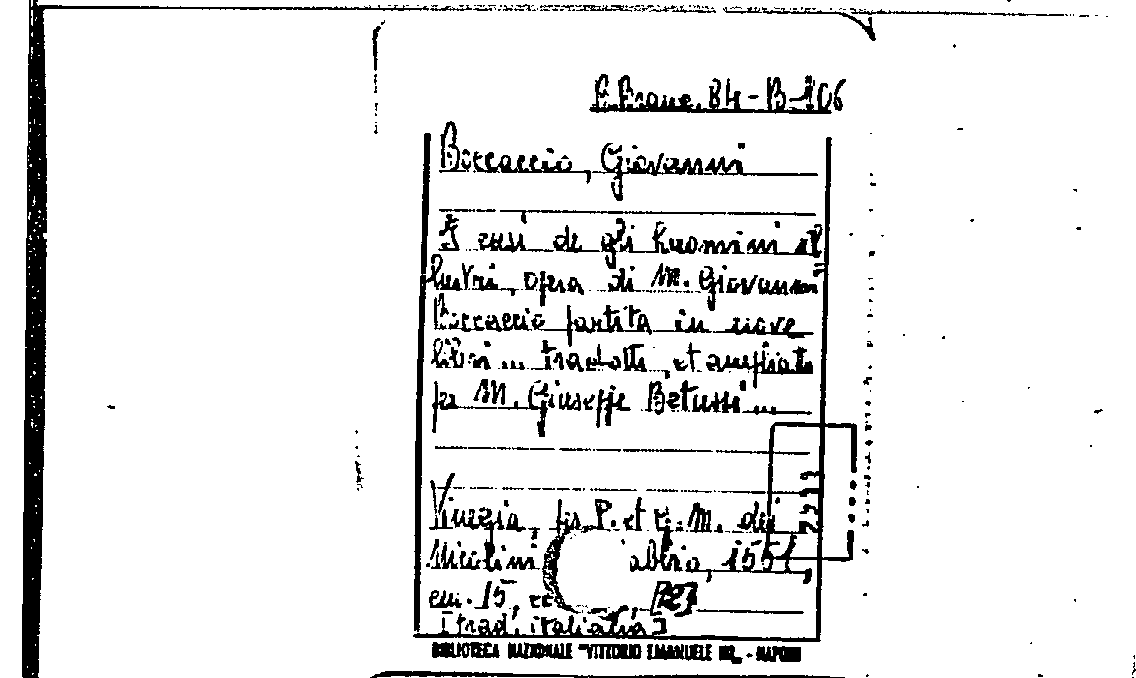 B. Branc. 84-B-106
Boccaccio, Giovanni
I casi de gli huomini il
lustri, opera di M. Giovanni
Boccaccio partita in nove
libri ... tradotti et ampliati
per M. Giuseppe Betussi ...
Vinezia, per P. et G. M. dei
Nicolini abbio, 1551,
cm. 15, [12]
[trad. italiana]
BIBLIOTECA NAZIONALE "VITTORIO EMANUELE III" - NAPOLI